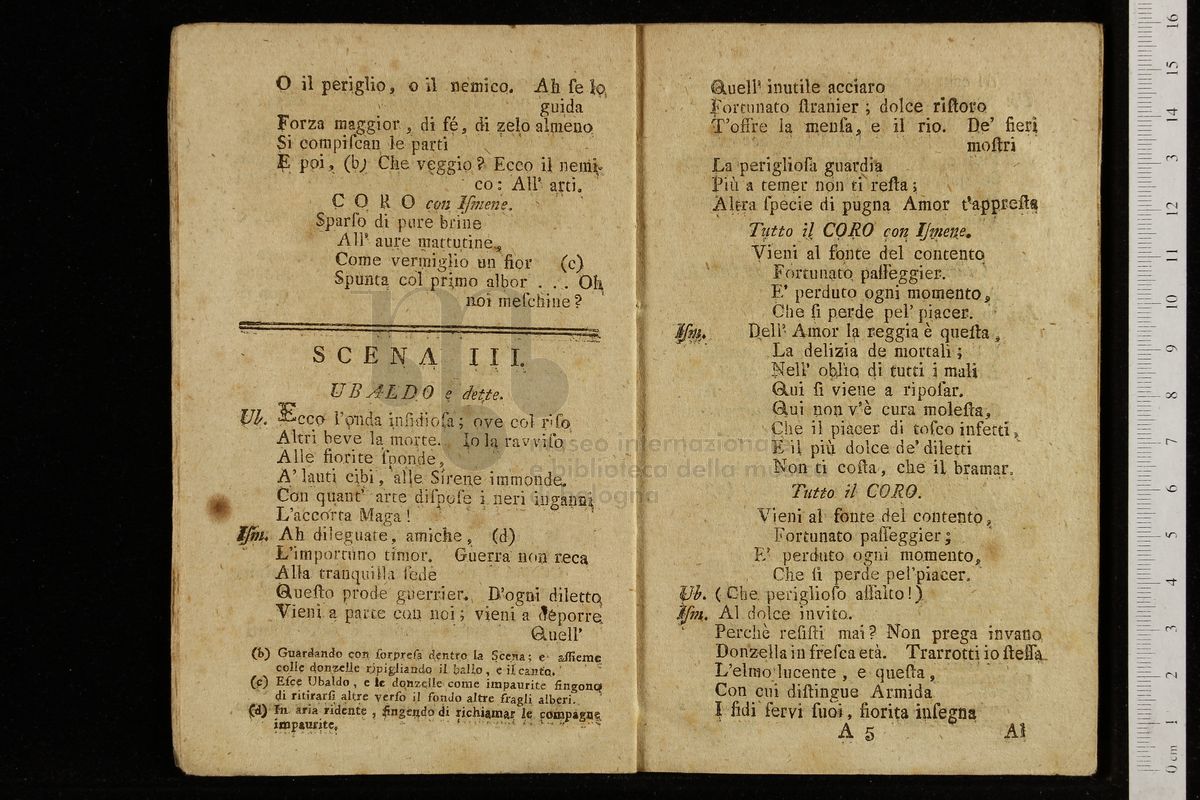 O il periglio, o il nemico. Ah ſe lo
guida
Forza maggior, di fé, di zelo almeno
Si compiſcan le parti
E poi, (b) Che veggio? Ecco il nemi-
co: All' arti.
CORO con Iſmene.
Sparſo di pure brine
All' aure mattutine,
Come vermiglio un fior (c)
Spunta col primo albor . . . Oh
noi meſchine?
SCENA III.
UBALDO e dette.
Ub. Ecco l'onda inſidioſa; ove col riſo
Altri beve la morte. Io la ravviſo
Alle fiorite ſponde,
A' lauti cibi, alle Sirene immonde.
Con quant' arte diſpoſe i neri inganni
L'accorta Maga!
Iſm. Ah dileguate, amiche, (d)
L'importuno timor. Guerra non reca
Alla tranquilla ſede
Queſto prode guerrier. D'ogni diletto
Vieni a parte con noi; vieni a deporre
Quell'
(b) Guardando con ſorpreſa dentro la Scena; e aſſieme
colle donzelle ripigliando il ballo, e il canto.
(c) Eſce Ubaldo, e le donzelle come impaurite fingono
di ritirarſi altre verſo il fondo altre fragli alberi.
(d) In aria ridente, fingendo di richiamar le compagne
impaurite.
Quell' inutile acciaro
Fortunato ſtranier; dolce riſtoro
T'offre la menſa, e il rio. De' fieri
moſtri
La periglioſa guardia
Più a temer non ti reſta;
Altra ſpecie di pugna Amor t'appreſta
Tutto il CORO con Iſmene.
Vieni al fonte del contento
Fortunato paſſeggier.
E' perduto ogni momento,
Che ſi perde pel' piacer.
Iſm. Dell' Amor la reggia è queſta,
La delizia de mortali;
Nell' oblio di tutti i mali
Qui ſi viene a ripoſar.
Qui non v'è cura moleſta,
Che il piacer di toſco infetti,
E il più dolce de' diletti
Non ti coſta, che il bramar.
Tutto il CORO.
Vieni al fonte del contento,
Fortunato paſſeggier;
E' perduto ogni momento,
Che ſi perde pel'piacer.
Ub. (Che periglioſo aſſalto!)
Iſm. Al dolce invito.
Perchè reſiſti mai? Non prega invano
Donzella in freſca età. Trarrotti io ſteſſa
L'elmo lucente, e queſta,
Con cui diſtingue Armida
I fidi ſervi ſuoi, fiorita inſegna
A 5 Al
museo internazionale
e biblioteca della musica
di bologna
0 cm 1 2 3 4 5 6 7 8 9 10 11 12 13 14 15 16